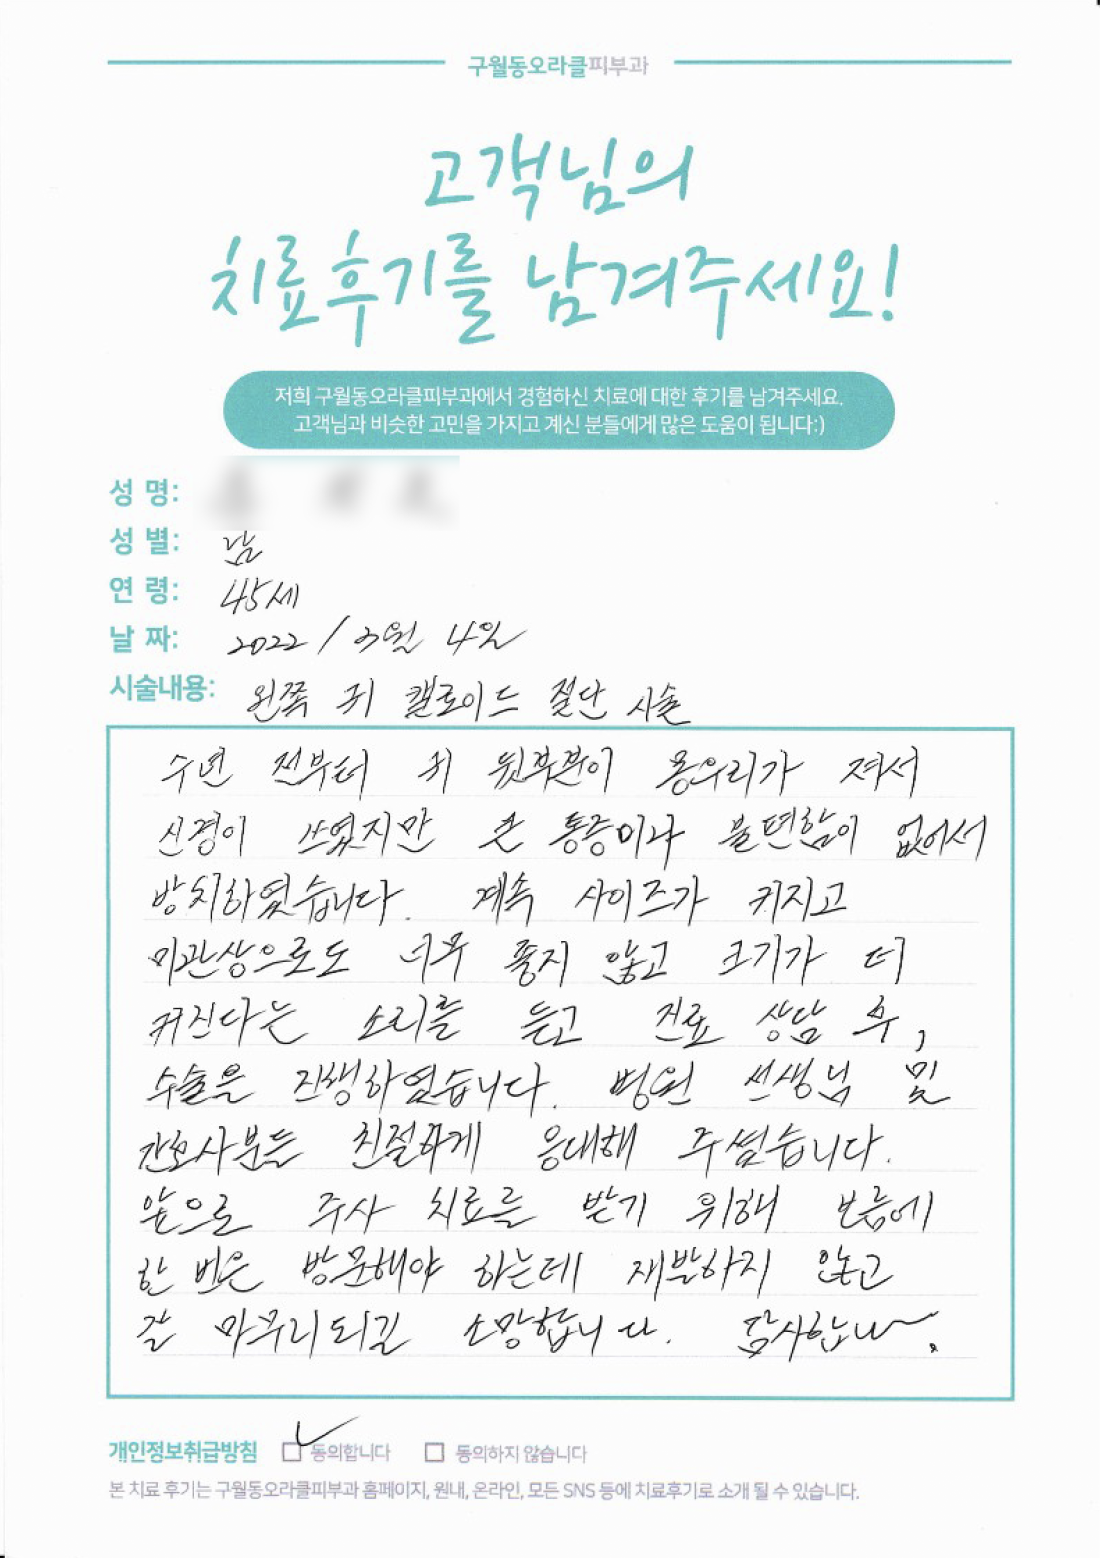 구월동오라클피부과
고객님의
치료후기를 남겨주세요!
저희 구월동오라클피부과에서 경험하신 치료에 대한 후기를 남겨주세요.
고객님과 비슷한 고민을 가지고 계신 분들에게 많은 도움이 됩니다:)
성 명:
성 별: 남
연 령: 45세
날 짜: 2022 / 3월 4일
시술내용: 왼쪽 귀 캘로이드 절단 시술
수년 전부터 귀 뒷부분이 몽우리가 져서
신경이 쓰였지만 큰 통증이나 불편함이 없어서
방치하였습니다. 계속 사이즈가 커지고
미관상으로도 너무 좋지 않고 크기가 더
커진다는 소리를 듣고 진료 상담 후,
수술을 진행하였습니다. 병원 선생님 및
간호사분들 친절하게 응대해 주셨습니다.
앞으로 주사 치료를 받기 위해 보름에
한 번은 방문해야 하는데 재발하지 않고
잘 마무리되길 소망합니다. 감사합니다.
개인정보취급방침 동의합니다 동의하지 않습니다
본 치료 후기는 구월동오라클피부과 홈페이지, 원내, 온라인, 모든 SNS 등에 치료후기로 소개 될 수 있습니다.